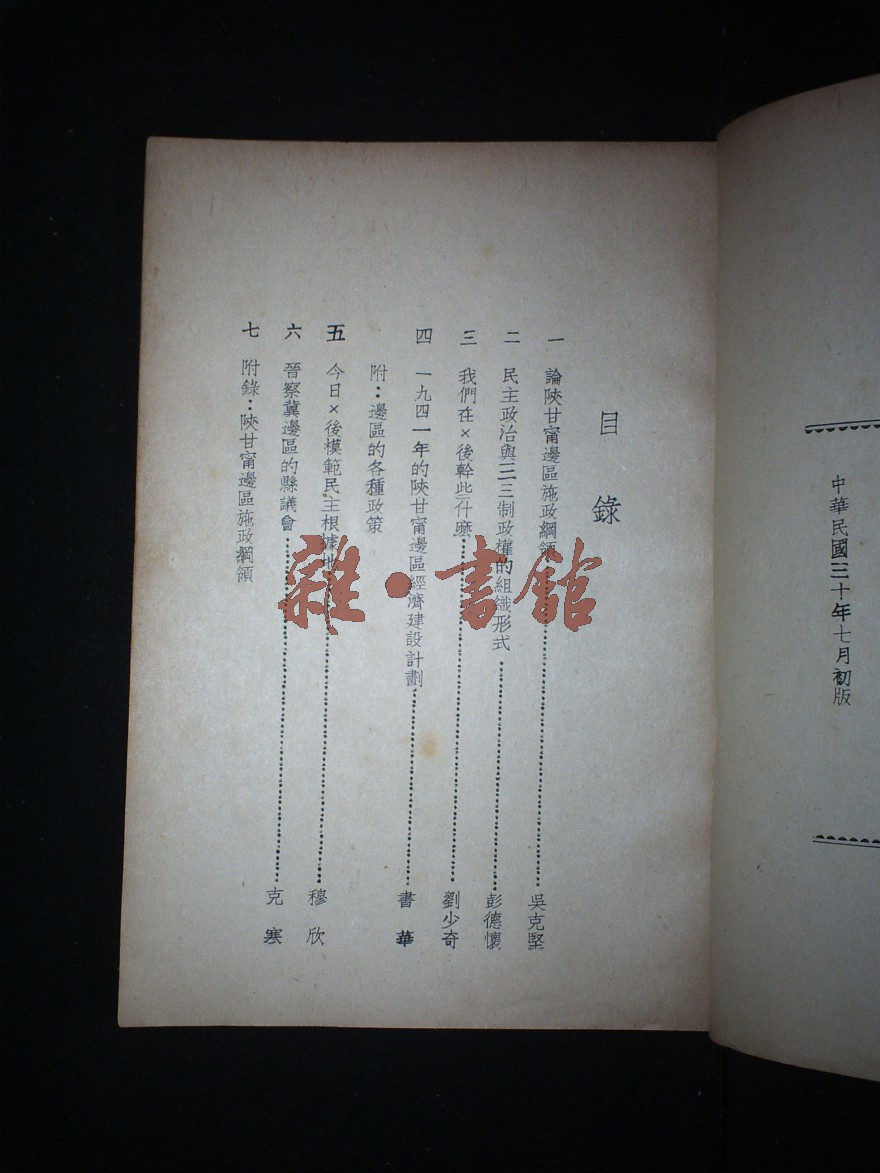 中華民國三十年七月初版
目錄
一 論陝甘甯邊區施政綱領…………吳克堅
二 民主政治與三三制政權的組織形式…………彭德懷
三 我們在×後幹些什麽…………劉少奇
四 一九四一年的陝甘甯邊區經濟建設計劃…………書華
附：邊區的各種政策
五 今日×後模範民主根據地…………穆欣
六 晉察冀邊區的縣議會…………克寒
七 附錄：陝甘甯邊區施政綱領
雜·書館